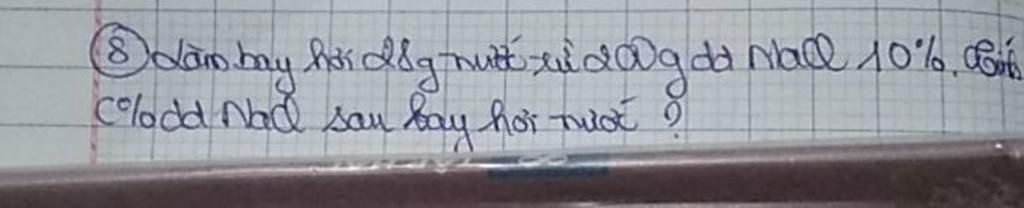 ⑧ Làm bay hơi 28g nước từ 200g dd NaCl 10%. Tính
C% dd NaCl sau bay hơi nước ?